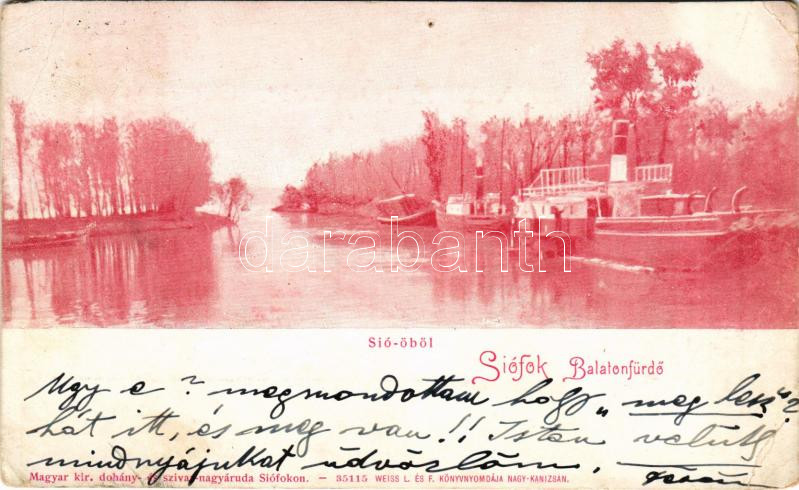 darabanth
Sió-öböl
Siófok Balatonfürdő
Ugy e ? megmondottam hogy „meg lesz"?
hát itt, és meg van!! Isten veletek
mindnyájukat üdvözlöm.
Magyar kir. dohány- és szivar-nagyáruda Siófokon. — 35115 WEISS L. ÉS F. KÖNYVNYOMDÁJA NAGY-KANIZSAN.